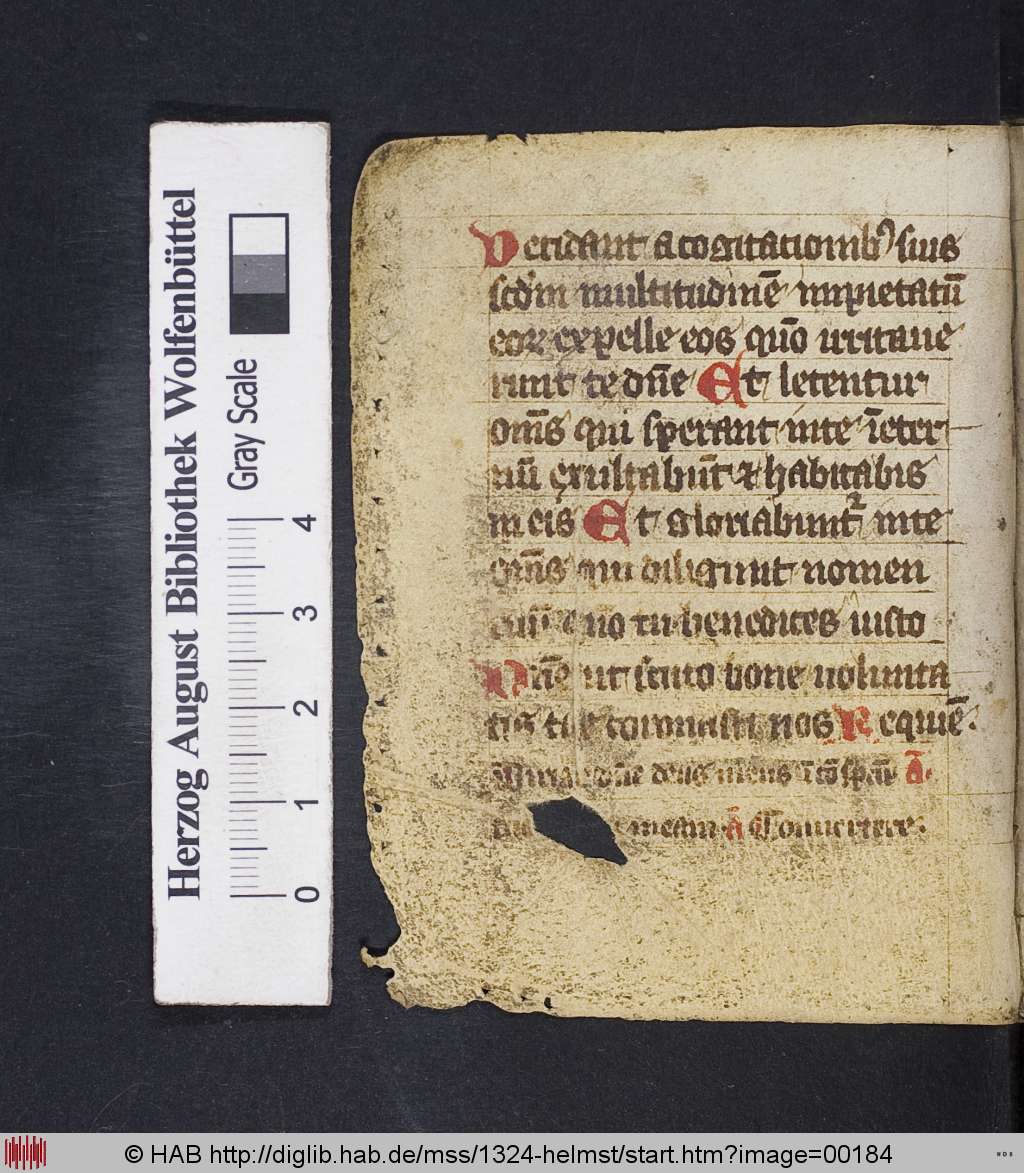 Decidant a cogitationibꝰ suis
scd'm multitudinē impietatū
eoꝝ expelle eos qm̄o irritaue
runt te dn̄e Et letentur
om̄s qui sperant in te īeter
nū exultabūt ⁊ habitabis
in eis Et gloriabuntᷣ in te
om̄s qui diligunt nomen
tuū qm̄o tu benedices iusto
Dn̄e ut scuto bone uolunta
tis tue coronasti nos Requiē.
Dirige dn̄e deus meus ī cōspc̄u A.
tuo meam A Conuertere.
Herzog August Bibliothek Wolfenbüttel
Gray Scale
0 1 2 3 4
© HAB http://diglib.hab.de/mss/1324-helmst/start.htm?image=00184